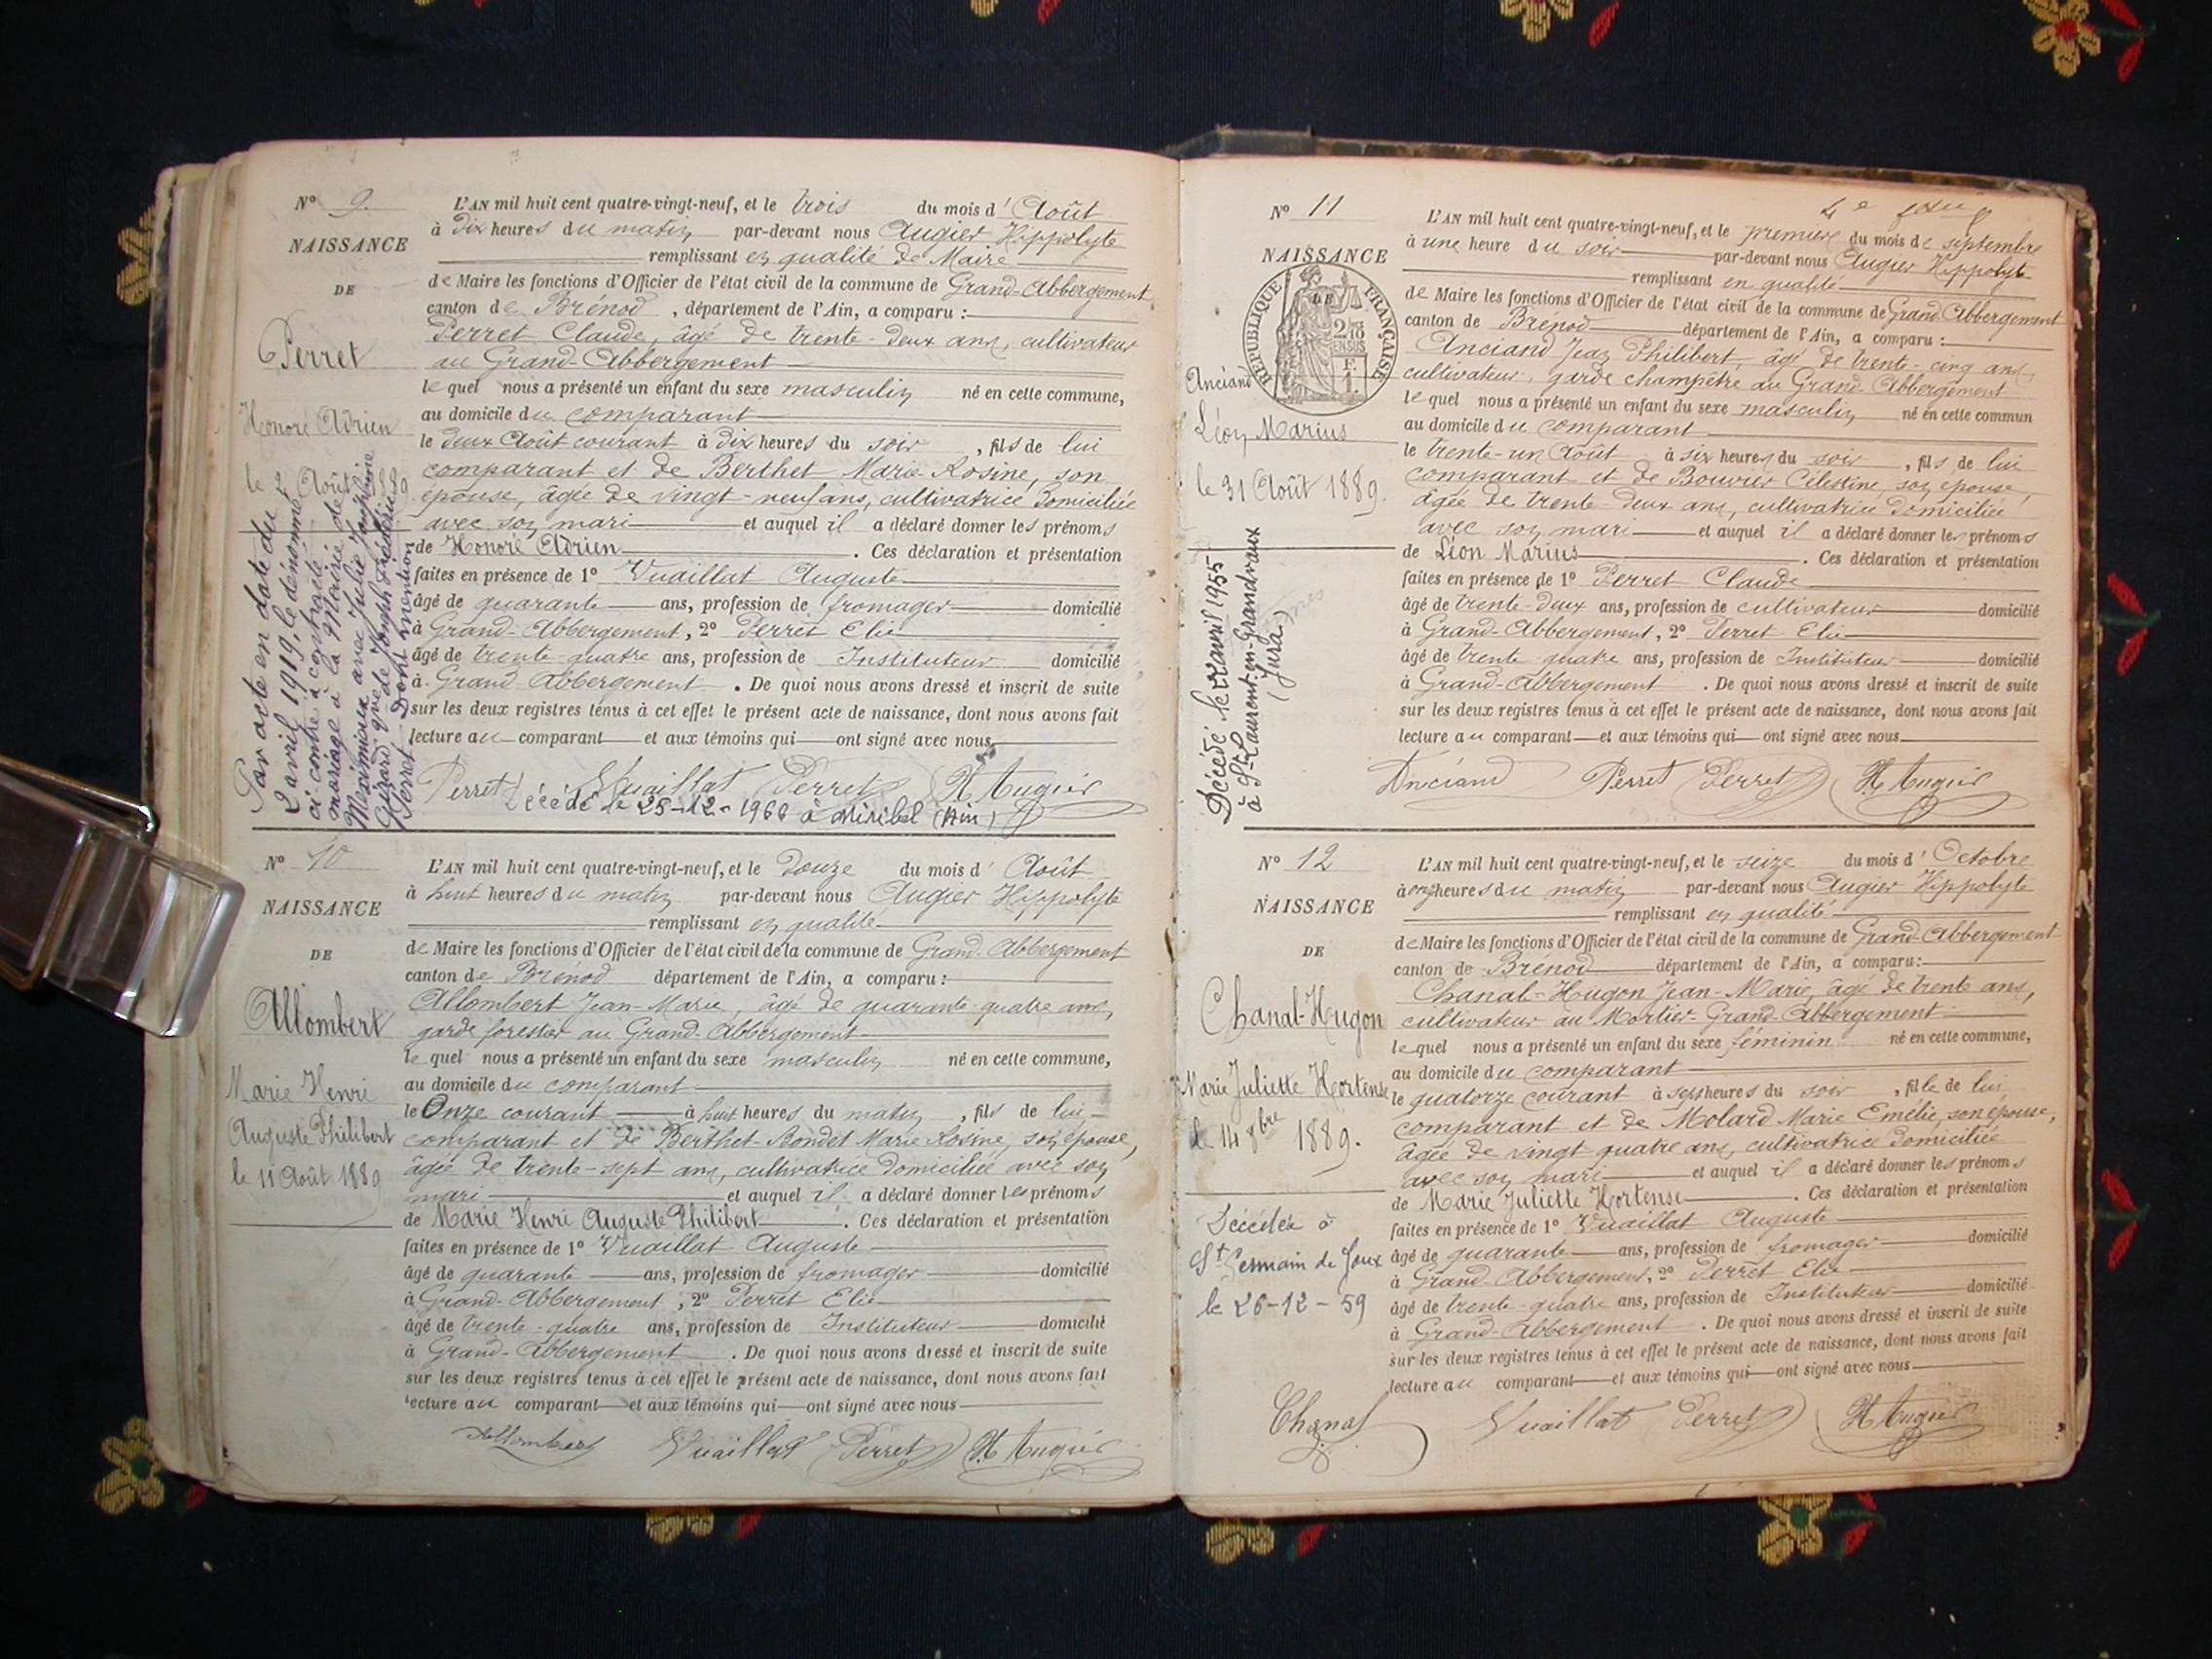 N° 9.
NAISSANCE
DE
Perret
Honoré Adrien
le 2 Août
Par acte en date du
2 avril 1919, le dénommé
ci-contre a contracté
mariage à la Mairie de
Meximieux avec Julie Joséphine
Dont mention
L'AN mil huit cent quatre-vingt-neuf, et le trois du mois d'Août
à dix heures du matin par-devant nous Augier Hippolyte
remplissant en qualité de Maire
de Maire les fonctions d'Officier de l'état civil de la commune de Grand-Abbergement
canton de Brénod, département de l'Ain, a comparu :
Perret Claude, âgé de trente-deux ans, cultivateur
au Grand-Abbergement
lequel nous a présenté un enfant du sexe masculin né en cette commune,
au domicile du comparant
le deux Août courant à dix heures du soir, fils de lui
comparant et de Berthet Marie-Rosine, son
épouse, âgée de vingt-neuf ans, cultivatrice domiciliée
avec son mari et auquel il a déclaré donner les prénoms
de Honoré Adrien. Ces déclaration et présentation
faites en présence de 1° Vuaillat Auguste
âgé de quarante ans, profession de fromager domicilié
à Grand-Abbergement, 2° Perret Elie
âgé de trente-quatre ans, profession de Instituteur domicilié
à Grand-Abbergement. De quoi nous avons dressé et inscrit de suite
sur les deux registres tenus à cet effet le présent acte de naissance, dont nous avons fait
lecture au comparant et aux témoins qui ont signé avec nous.
Perret Vuaillat Perret H Augier
Décédé le 25-12-1968 à Miribel (Ain)
N° 10
NAISSANCE
DE
Allombert
Marie Henri
Auguste Philibert
le 11 Août 1889
L'AN mil huit cent quatre-vingt-neuf, et le Douze du mois d'Août
à huit heures du matin par-devant nous Augier Hippolyte
remplissant en qualité
de Maire les fonctions d'Officier de l'état civil de la commune de Grand-Abbergement
canton de Brénod département de l'Ain, a comparu :
Allombert Jean-Marie, âgé de quarante-quatre ans,
garde forestier au Grand-Abbergement
lequel nous a présenté un enfant du sexe masculin né en cette commune,
au domicile du comparant
le Onze courant à huit heures du matin, fils de lui
comparant et de Berthet Bondet Marie Rosine, son épouse,
âgée de trente-sept ans, cultivatrice domiciliée avec son
mari et auquel il a déclaré donner les prénoms
de Marie Henri Auguste Philibert. Ces déclaration et présentation
faites en présence de 1° Vuaillat Auguste
âgé de quarante ans, profession de fromager domicilié
à Grand-Abbergement, 2° Perret Elie
âgé de trente-quatre ans, profession de Instituteur domicilié
à Grand-Abbergement. De quoi nous avons dressé et inscrit de suite
sur les deux registres tenus à cet effet le présent acte de naissance, dont nous avons fait
lecture au comparant et aux témoins qui ont signé avec nous
Allombert Vuaillat Perret H Augier
4e
N° 11
NAISSANCE
DE
RÉPUBLIQUE FRANÇAISE
Anciand
Léon Marius
le 31 Août 1889.
Décédé le avril 1955
à St-Laurent-en-Grandvaux
(Jura)
L'AN mil huit cent quatre-vingt-neuf, et le premier du mois de septembre
à une heure du soir par-devant nous Augier Hippolyte
remplissant en qualité
de Maire les fonctions d'Officier de l'état civil de la commune de Grand-Abbergement
canton de Brénod département de l'Ain, a comparu :
Anciand Jean Philibert, âgé de trente-cinq ans,
cultivateur, garde champêtre au Grand-Abbergement
lequel nous a présenté un enfant du sexe masculin né en cette commun
au domicile du comparant
le trente-un Août à six heures du soir, fils de lui
comparant et de Bouvier Célestine, son épouse,
âgée de trente-deux ans, cultivatrice domiciliée
avec son mari et auquel il a déclaré donner les prénoms
de Léon Marius. Ces déclaration et présentation
faites en présence de 1° Perret Claude
âgé de trente-deux ans, profession de cultivateur domicilié
à Grand-Abbergement, 2° Perret Elie
âgé de trente-quatre ans, profession de Instituteur domicilié
à Grand-Abbergement. De quoi nous avons dressé et inscrit de suite
sur les deux registres tenus à cet effet le présent acte de naissance, dont nous avons fait
lecture au comparant et aux témoins qui ont signé avec nous
Anciand Perret Perret H Augier
N° 12
NAISSANCE
DE
Chanal-Hugon
Marie Juliette Hortense
le 14 8bre 1889.
Décédée à
St Germain de Joux
le 26-12-59
L'AN mil huit cent quatre-vingt-neuf, et le seize du mois d'Octobre
à onze heures du matin par-devant nous Augier Hippolyte
remplissant en qualité
de Maire les fonctions d'Officier de l'état civil de la commune de Grand-Abbergement
canton de Brénod département de l'Ain, a comparu :
Chanal-Hugon Jean-Marie, âgé de trente ans,
cultivateur au Mortier-Grand-Abbergement
lequel nous a présenté un enfant du sexe féminin né en cette commune,
au domicile du comparant
le quatorze courant à sept heures du soir, fille de lui
comparant et de Molard Marie Emélie, son épouse,
âgée de vingt quatre ans, cultivatrice domiciliée
avec son mari et auquel il a déclaré donner les prénoms
de Marie Juliette Hortense. Ces déclaration et présentation
faites en présence de 1° Vuaillat Auguste
âgé de quarante ans, profession de fromager domicilié
à Grand-Abbergement, 2° Perret Elie
âgé de trente-quatre ans, profession de Instituteur domicilié
à Grand-Abbergement. De quoi nous avons dressé et inscrit de suite
sur les deux registres tenus à cet effet le présent acte de naissance, dont nous avons fait
lecture au comparant et aux témoins qui ont signé avec nous
Chanal Vuaillat Perret H Augier